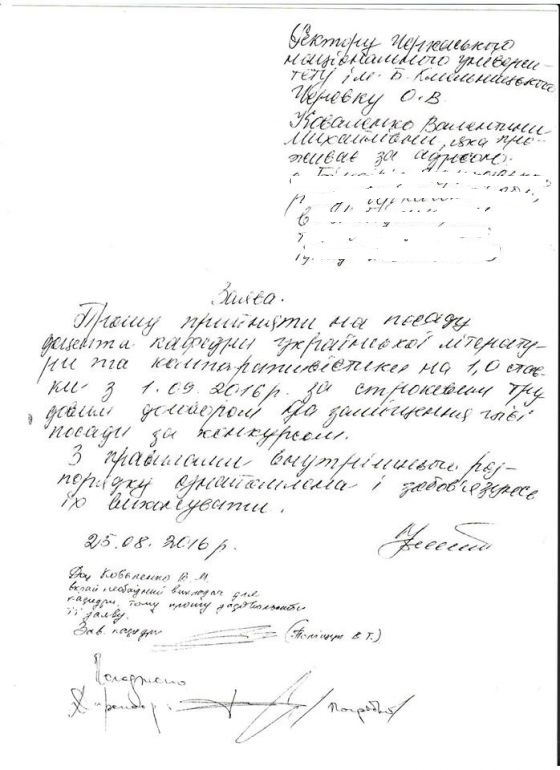 Ректору Черкаського
національного універси-
тету ім. Б. Хмельницького
Черевку О.В.
Коваленко Валентини
Михайлівни, яка про-
живає за адресою:
Заява.
Прошу прийняти на посаду
доцента кафедри української літерату-
ри та компаративістики на 1,0 став-
ки з 1.09.2016р. за строковим тру
довим договором до заміщення цієї
посади за конкурсом.
З правилами внутрішнього роз-
порядку ознайомлена і зобов'язуюсь
їх виконувати.
25.08.2016р.
Доц Коваленко В.М
вкрай необхідний викладач для
кафедри, тому прошу задовольнити
її заяву.
Зав. кафедри (Поліщук В.Т.)
Погоджено
Директор: